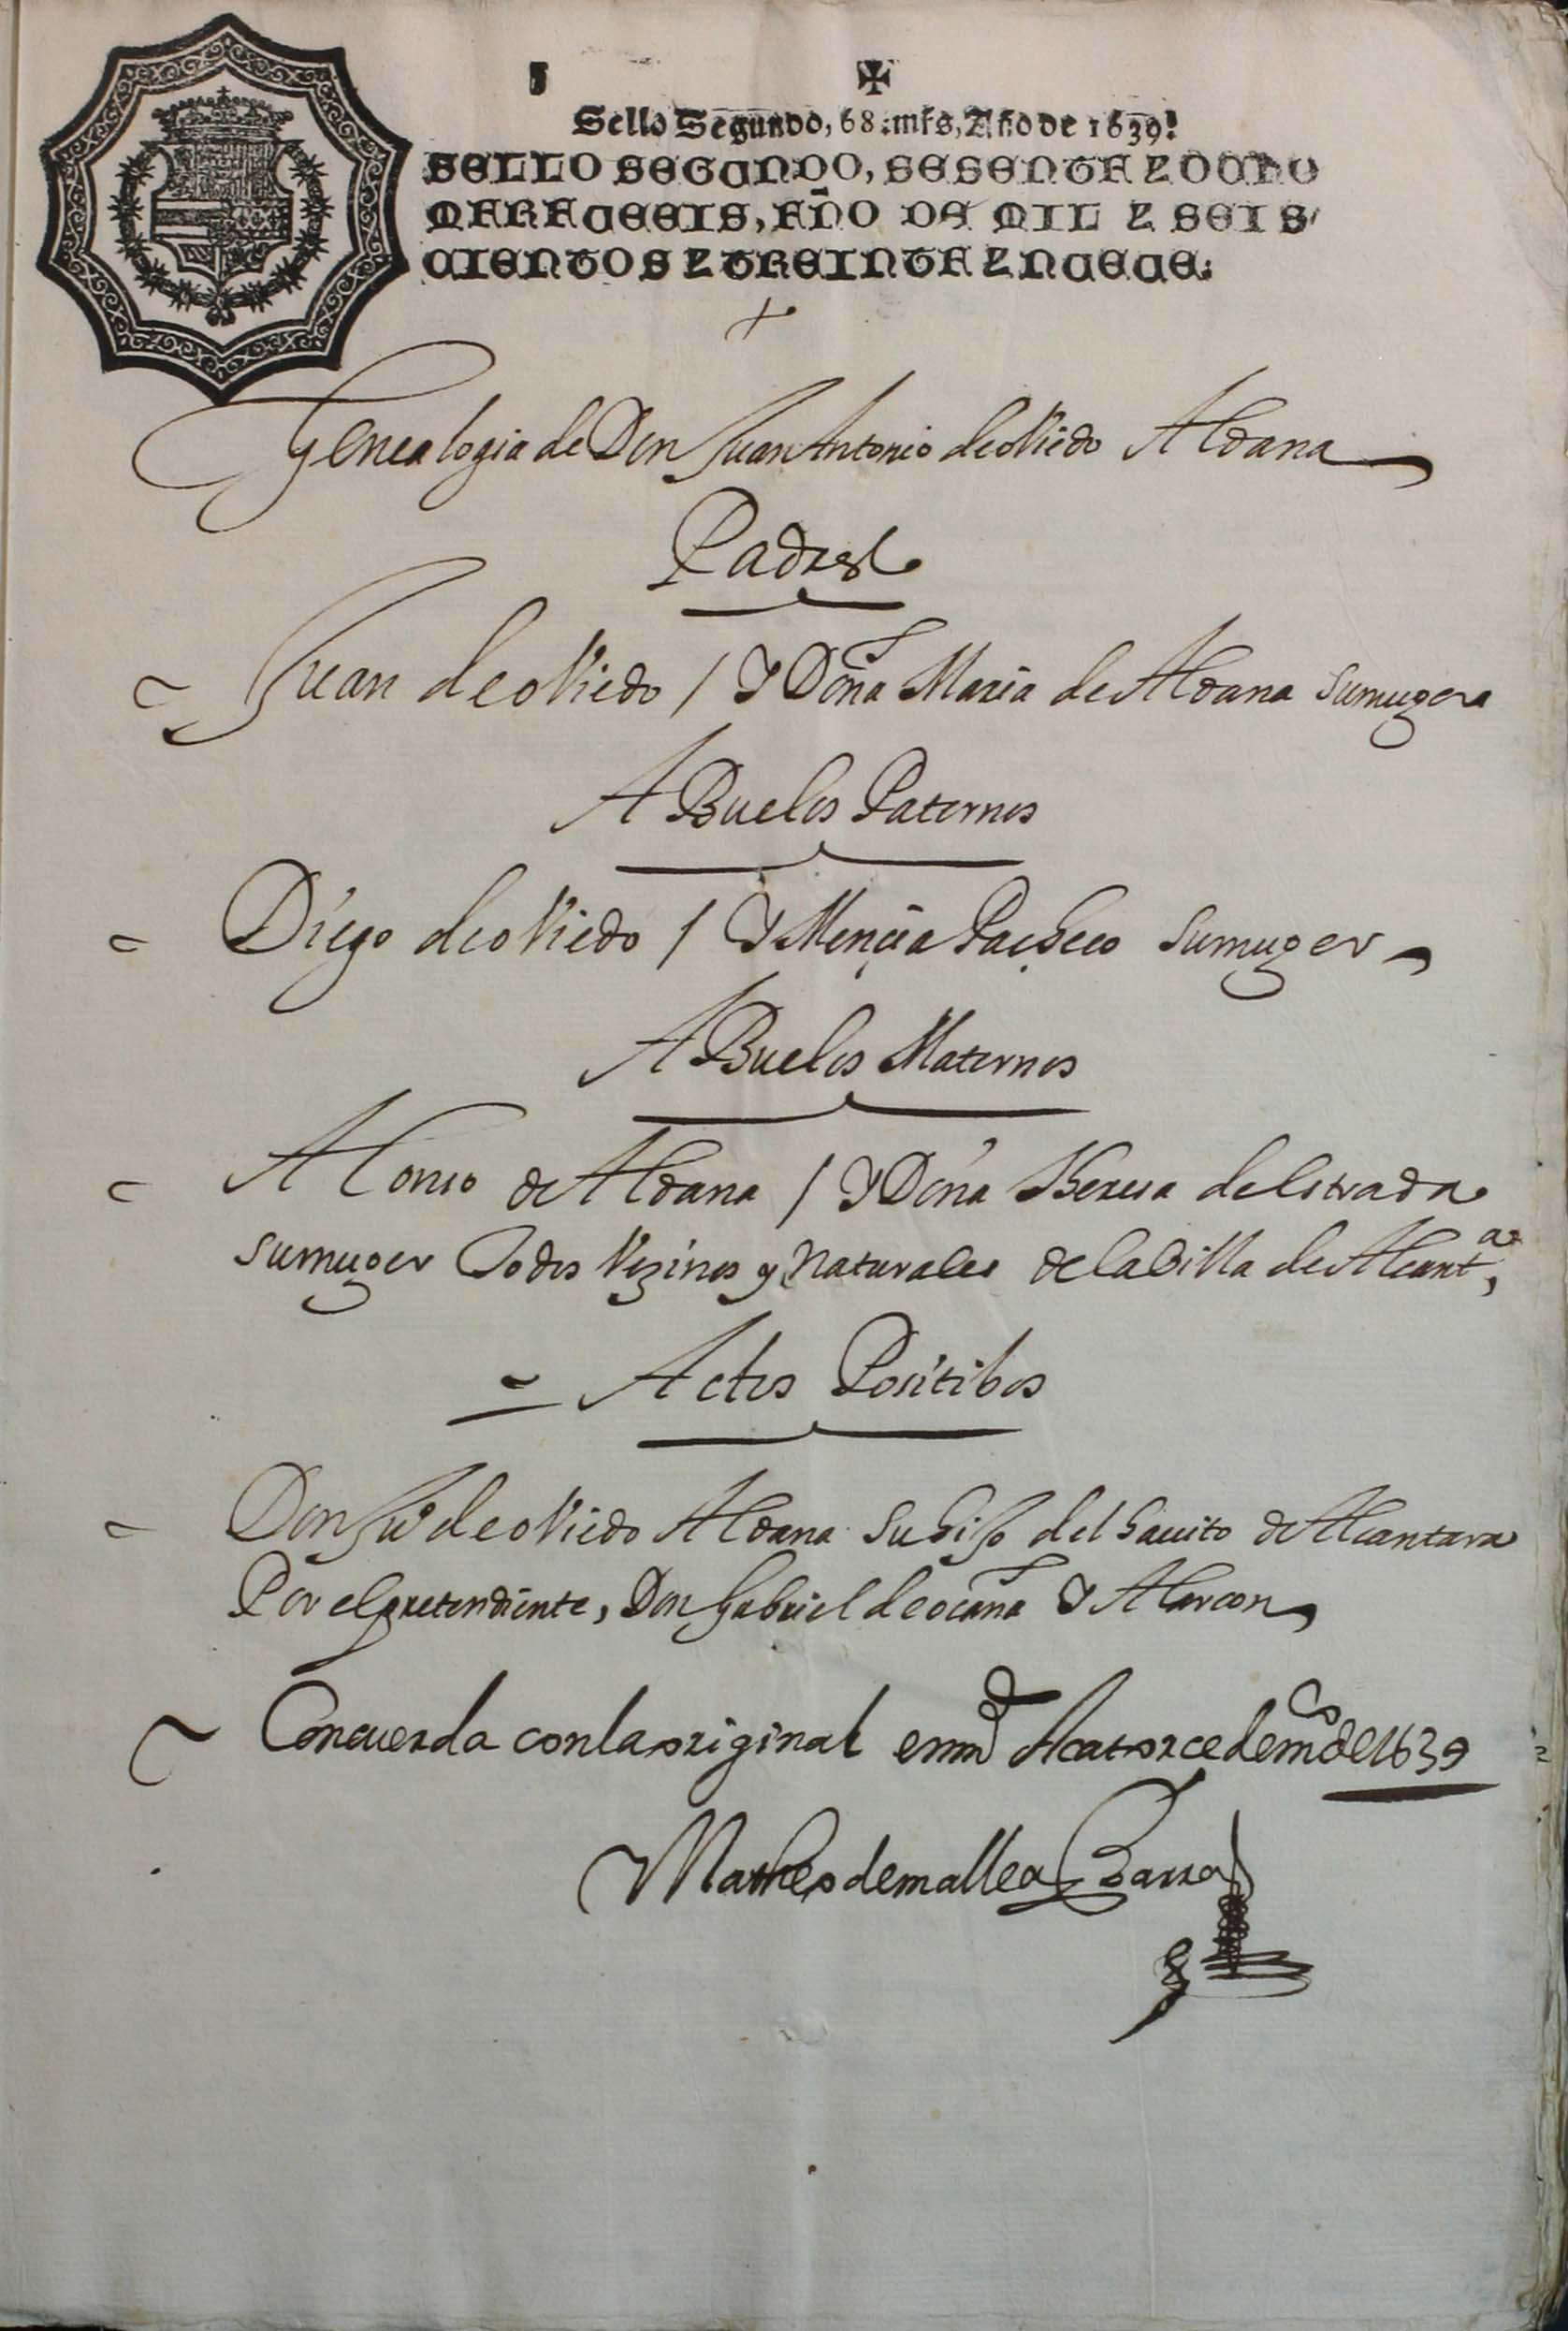 Sello Segundo, 68. mrs, Año de 1639.
SELLO SEGUNDO, SESENTA Y OCHO
MARAVEDIS, AÑO DE MIL Y SEIS
CIENTOS Y TREINTA Y NUEVE.
Genealogia de Don Juan Antonio de oViedo Aldana
Padres
Juan de oViedo / Y Doña Maria de Aldana su muger
ABuelos Paternos
Diego de oViedo / Y Mençia Pacheco su muger
ABuelos Maternos
Alonso de Aldana / Y Doña Theresa de Estrada
su muger Todos Vezinos y Naturales de la Villa de Alcant.ª
Actos Positibos
Don Juº de oViedo Aldana su hijo del hauito de Alcantara
Por el pretendiente, Don Gabriel de ocaña Y Alarcon
Concuerda con la original en md A catorce de mço de 1639
Matheo de mallea Barra